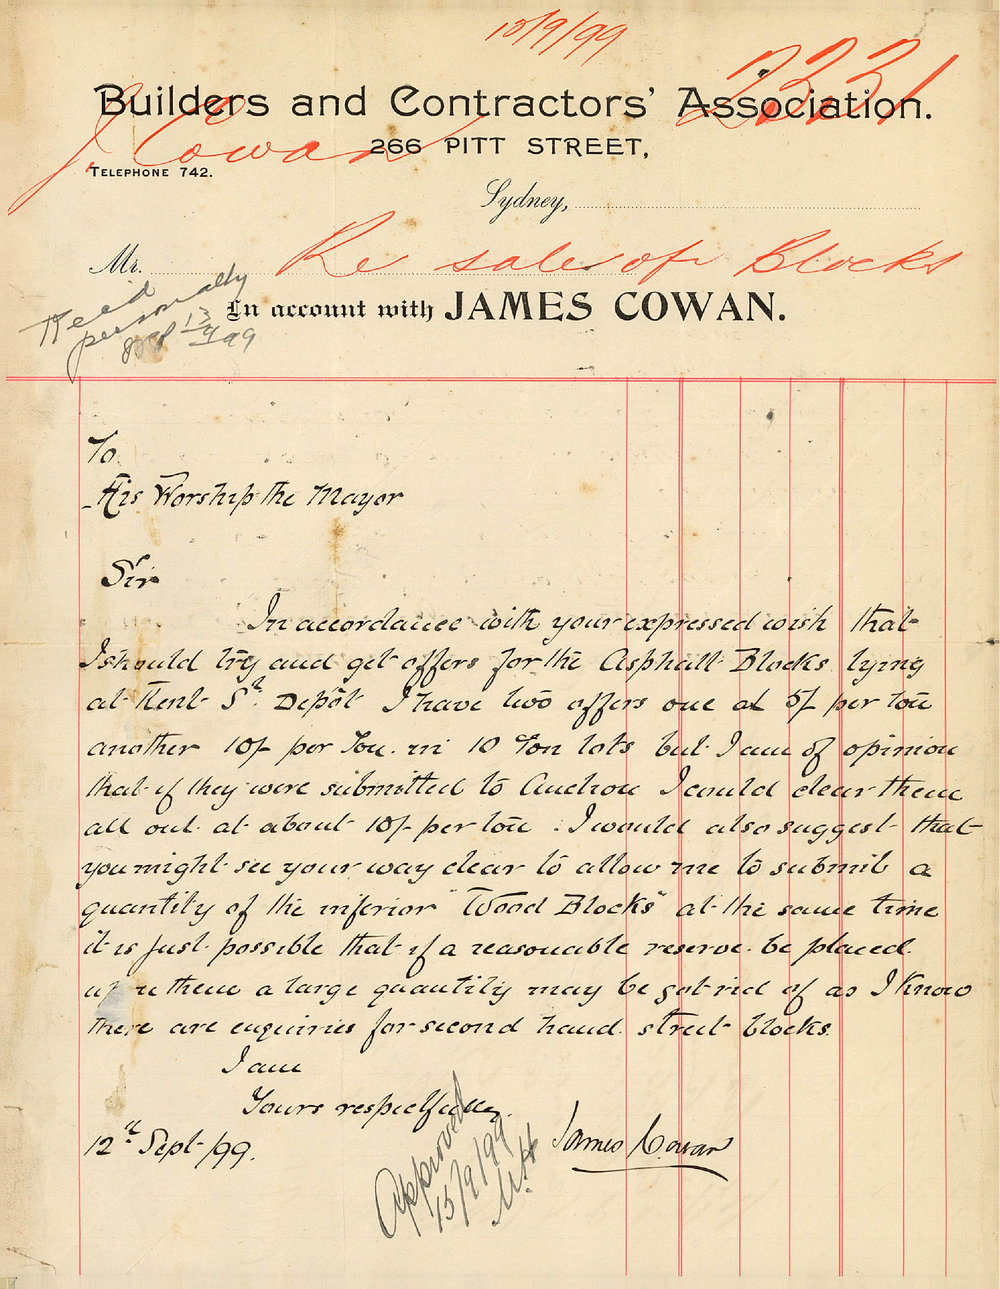 13/9/99
2331
Builders and Contractors' Association.
J. Cowan
266 PITT STREET,
TELEPHONE 742.
Sydney,
Mr. Re sale of Blocks
In account with JAMES COWAN.
Rec'd
personally
13/9/99
To
His Worship the Mayor
Sir
In accordance with your expressed wish that
I should try and get offers for the Asphalt Blocks lying
at Kent St. Depôt I have two offers one at 5/- per ton
another 10/- per Ton in 10 Ton lots but I am of opinion
that if they were submitted to Auction I could clear them
all out at about 10/- per ton. I would also suggest that
you might see your way clear to allow me to submit a
quantity of the inferior "Wood Blocks" at the same time
it is just possible that if a reasonable reserve be placed
upon them a large quantity may be got rid of as I know
there are enquiries for second hand street blocks.
I am
Yours respectfully.
12th Sept/99. James Cowan
Approved
15/9/99